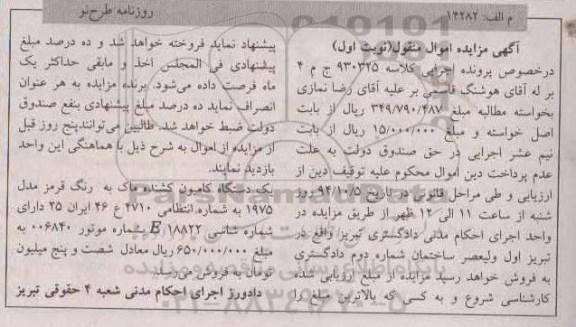 م الف: ۱۴۲۸۲
روزنامه طرح‌نو
آگهی مزایده اموال منقول(نوبت اول)
درخصوص پرونده اجرایی کلاسه ۹۳۰۳۲۵ ج م ۴
بر له آقای هوشنگ قاسمی بر علیه آقای رضا نمازی
بخواسته مطالبه مبلغ ۳۴۹/۷۹۰/۴۸۷ ریال از بابت
اصل خواسته و مبلغ ۱۵/۰۰۰/۰۰۰ ریال از بابت
نیم عشر اجرایی در حق صندوق دولت به علت
عدم پرداخت دین اموال محکوم علیه توقیف دین از
ارزیابی و طی مراحل قانونی در تاریخ ۹۴/۱۰/۵ روز
شنبه از ساعت ۱۱ الی ۱۲ ظهر از طریق مزایده در
واحد اجرای احکام مدنی دادگستری تبریز واقع در
تبریز اول ولیعصر ساختمان شماره دوم دادگستری
به فروش خواهد رسید مزایده از مبلغ ارزیابی شده
کارشناسی شروع و به کسی که بالاترین مبلغ را
پیشنهاد نماید فروخته خواهد شد و ده درصد مبلغ
پیشنهادی فی المجلس اخذ و مابقی حداکثر یک
ماه فرصت داده می‌شود. برنده مزایده به هر عنوان
انصراف نماید ده درصد مبلغ پیشنهادی بنفع صندوق
دولت ضبط خواهد شد. طالبین می‌توانندپنج روز قبل
از مزایده از اموال به شرح ذیل با هماهنگی این واحد
بازدید نمایند.
یک دستگاه کامیون کشنده ماک به رنگ قرمز مدل
۱۹۷۵ به شماره انتظامی ۴۷۱۰ ع ۴۶ ایران ۲۵ دارای
شماره شاسی B۱۸۸۲۲ بشماره موتور ۰۰۶۸۴۰ به
مبلغ ۶۵۰/۰۰۰/۰۰۰ ریال معادل شصت و پنج میلیون
تومان به فروش می‌رسد
دادورز اجرای احکام مدنی شعبه ۴ حقوقی تبریز
ParsNamadData
۰۲۱-۸۸۳۴۹۶۷۰-۵